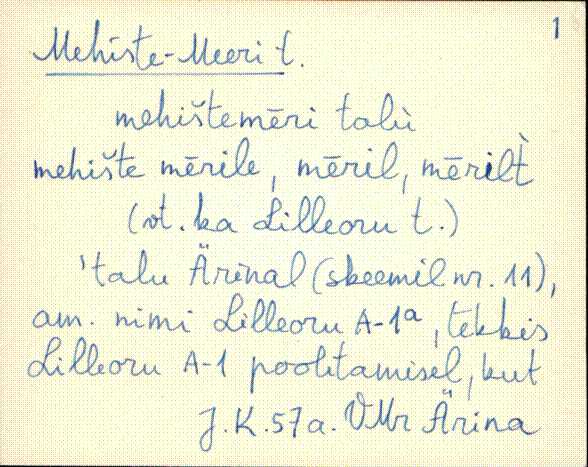 1
Mehiste-Meeri t.
mehištemēri talù
mehište mērile, mēril, mēril̀t
(vt. ka Lilleoru t.)
'talu Ärinal (skeemil nr. 11),
am. nimi Lilleoru A-1a, tekkis
Lilleoru A-1 poolitamisel, kut
J.K. 57a. VMr Ärina